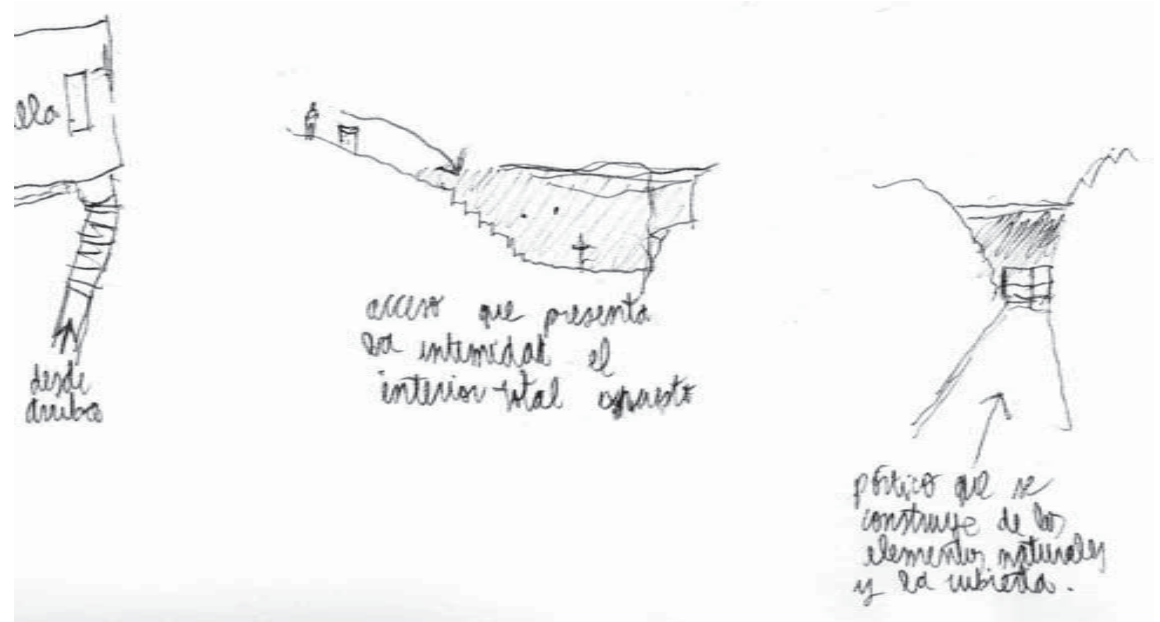 illa
desde
arriba
acceso que presenta
la intimidad el
interior total expuesto
pórtico que se
construye de los
elementos naturales
y la cubierta.